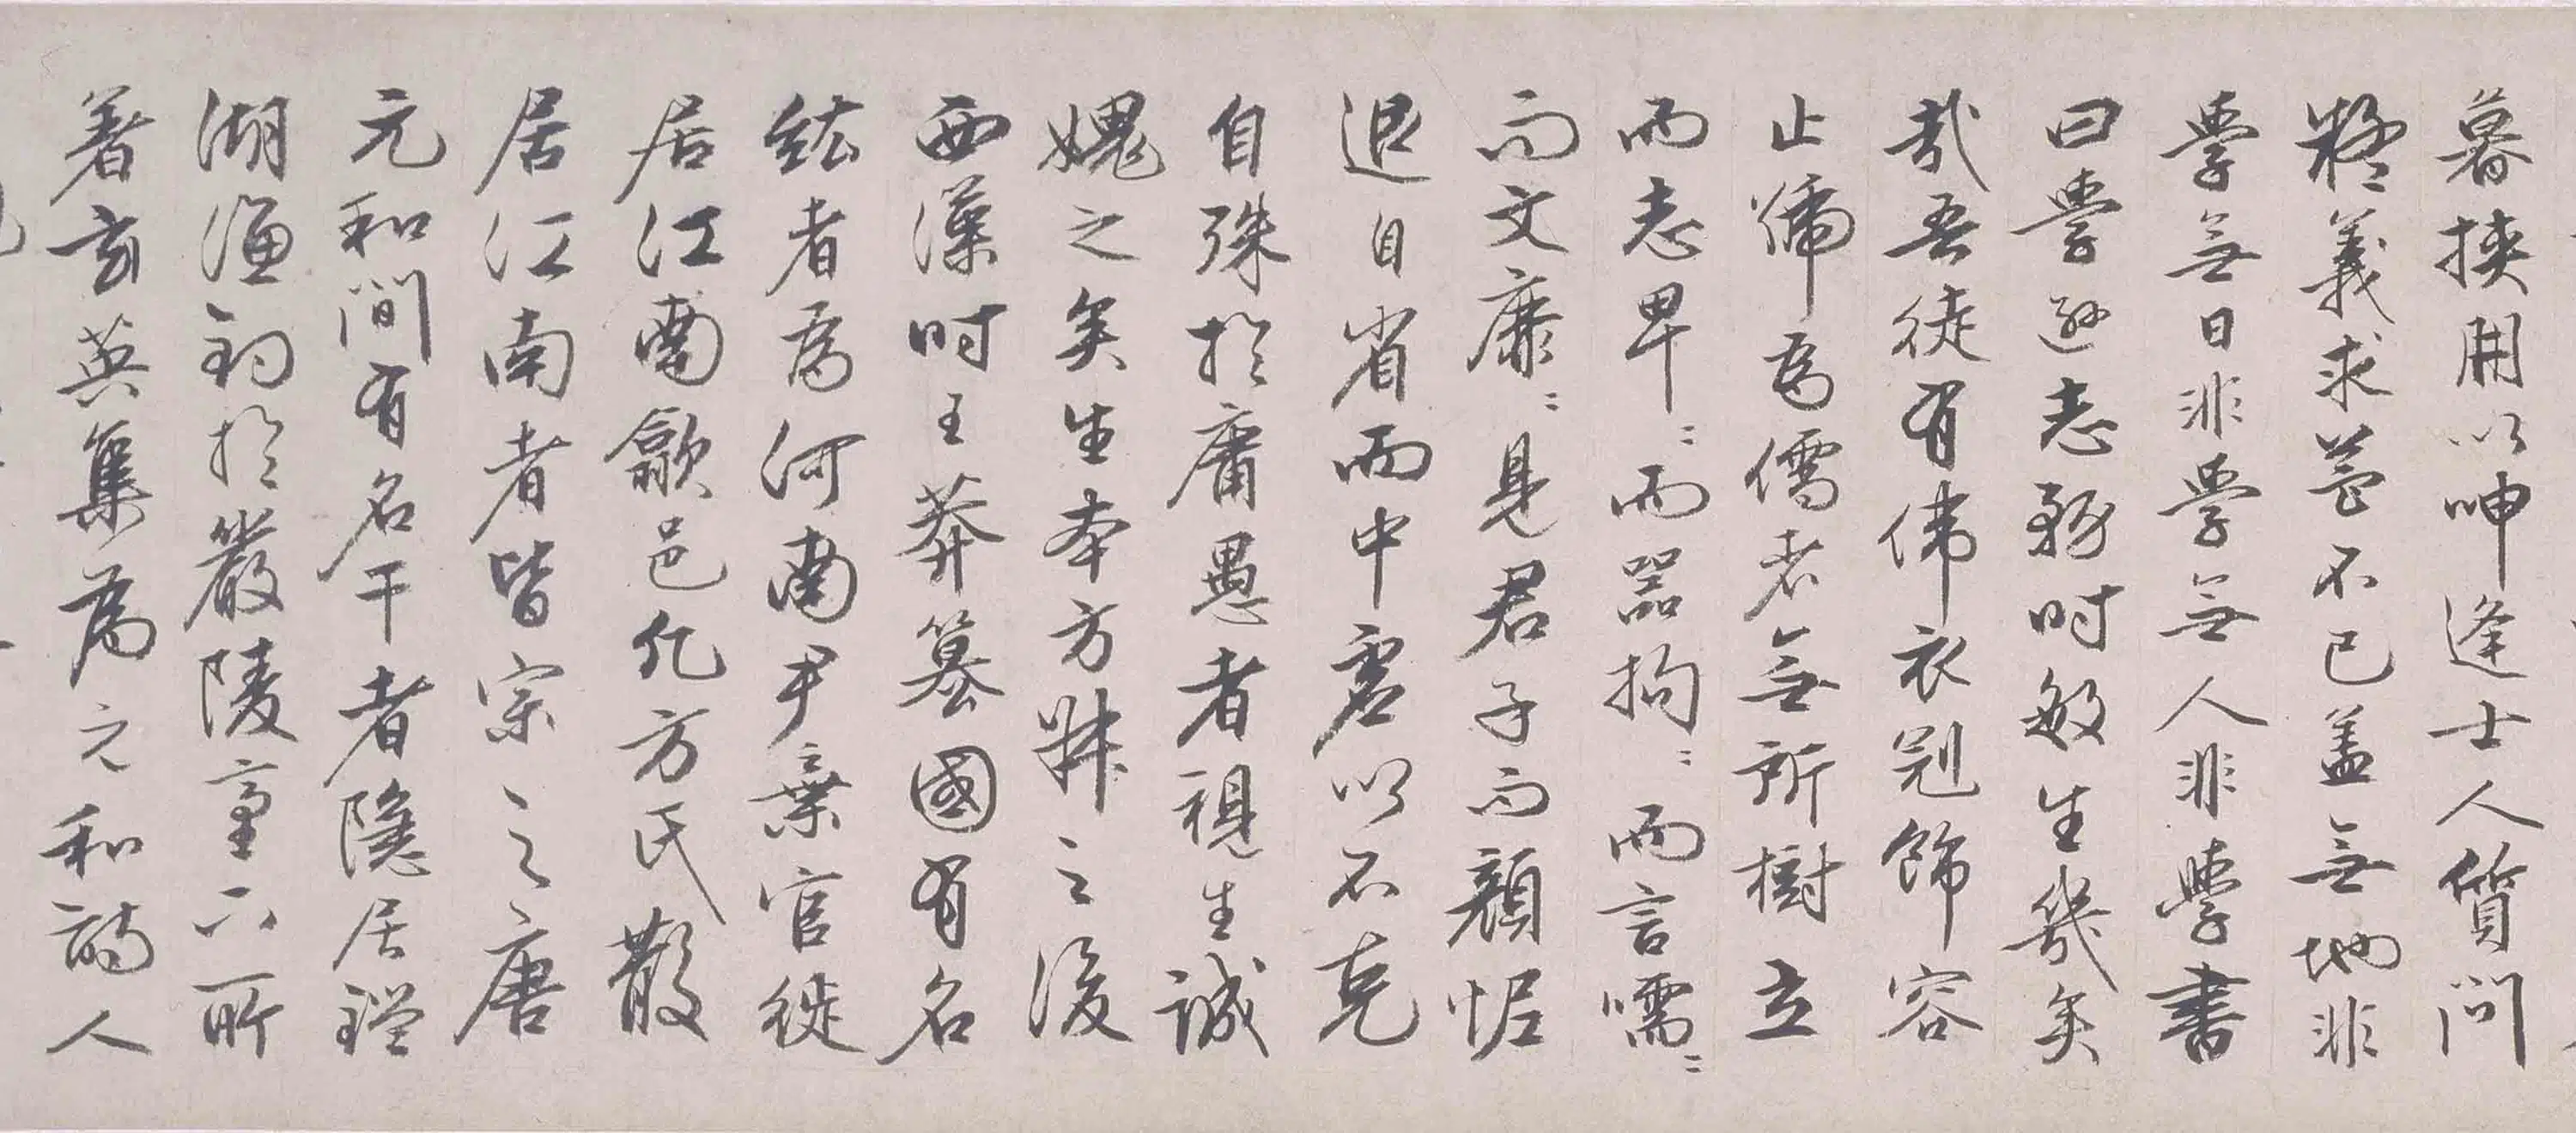 暮挾冊以呻逢士人質問
疑義求益不已盖無地非
學無日非學無人非學書
曰學遜志務時敏生幾矣
哉吾徒有偉衣冠飾容
止號為儒者無所樹立
而志卑〻而器拘〻而言嚅〻
而文靡〻見君子而顏怩
退自省而中慝以不克
自殊於庸愚者視生誠
媿之矣生本方姓之後
西漢時王莽篡國有名
紘者為河南尹棄官徙
居江南歙邑凡方氏散
居江南者皆宗之唐
元和間有名干者隱居鑑
湖漁釣於嚴陵臺下所
著玄英集為元和詩人